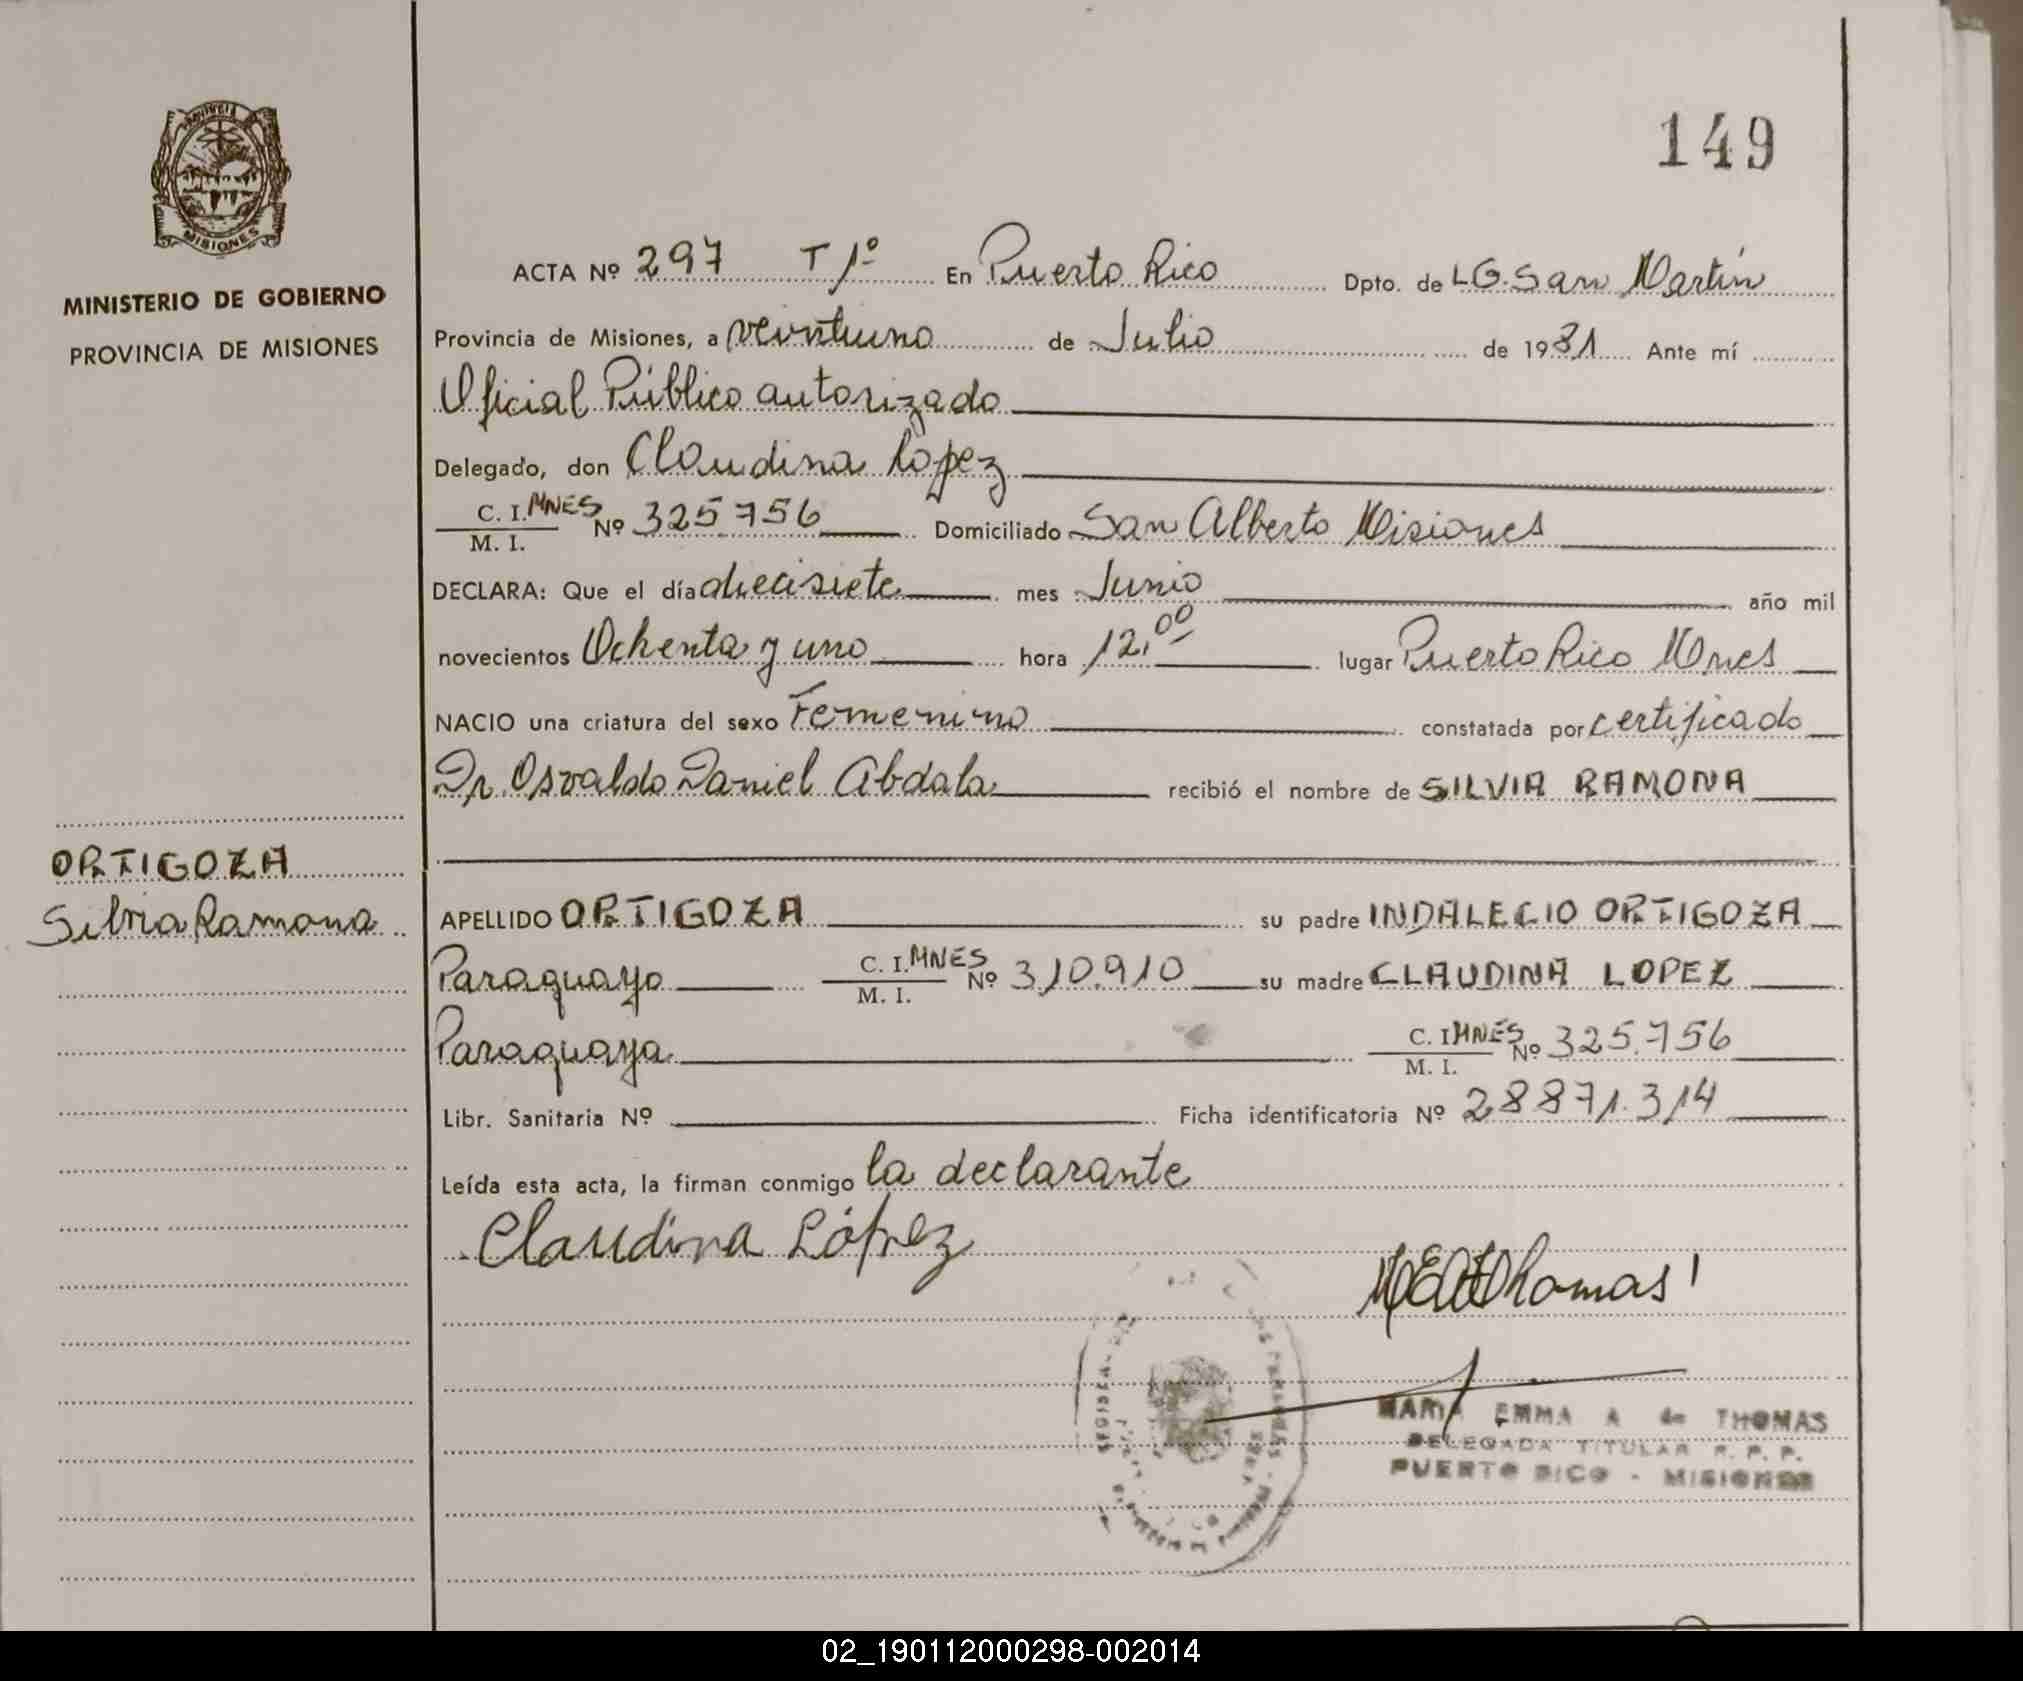 PROVINCIA
MISIONES
MINISTERIO DE GOBIERNO
PROVINCIA DE MISIONES
149
ACTA Nº 297 T 1º En Puerto Rico Dpto. de L.G. San Martín
Provincia de Misiones, a veintiuno de Julio de 1981 Ante mí
Oficial Público autorizado
Delegado, don Claudina López
C. I. MNES Nº 325756 Domiciliado San Alberto Misiones
M. I.
DECLARA: Que el día diecisiete mes Junio año mil
novecientos Ochenta y uno hora 12,00 lugar Puerto Rico Mnes
NACIO una criatura del sexo Femenino constatada por certificado
Dr. Osvaldo Daniel Abdala recibió el nombre de SILVIA RAMONA
ORTIGOZA
Silvia Ramona
APELLIDO ORTIGOZA su padre INDALECIO ORTIGOZA
Paraguayo C. I. MNES Nº 310.910 su madre CLAUDINA LOPEZ
M. I.
Paraguaya C. I. MNES Nº 325.756
M. I.
Libr. Sanitaria Nº Ficha identificatoria Nº 28871.314
Leída esta acta, la firman conmigo la declarante
Claudina López
Thomas
MARIA EMMA A de THOMAS
DELEGADA TITULAR R. P. P.
PUERTO RICO - MISIONES
02_190112000298-002014